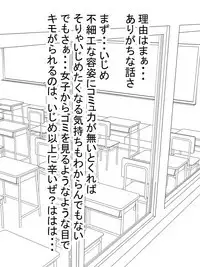 理由はまぁ・・・
ありがちな話さ
まず・・・いじめ
不細工な容姿にコミュ力が無いとくれば
そりゃいじめたくなる気持ちもわからんでもない
でもさぁ・・・女子からゴミを見るようなような目で
キモがられるのは、いじめ以上に辛いぜ?ははは・・・